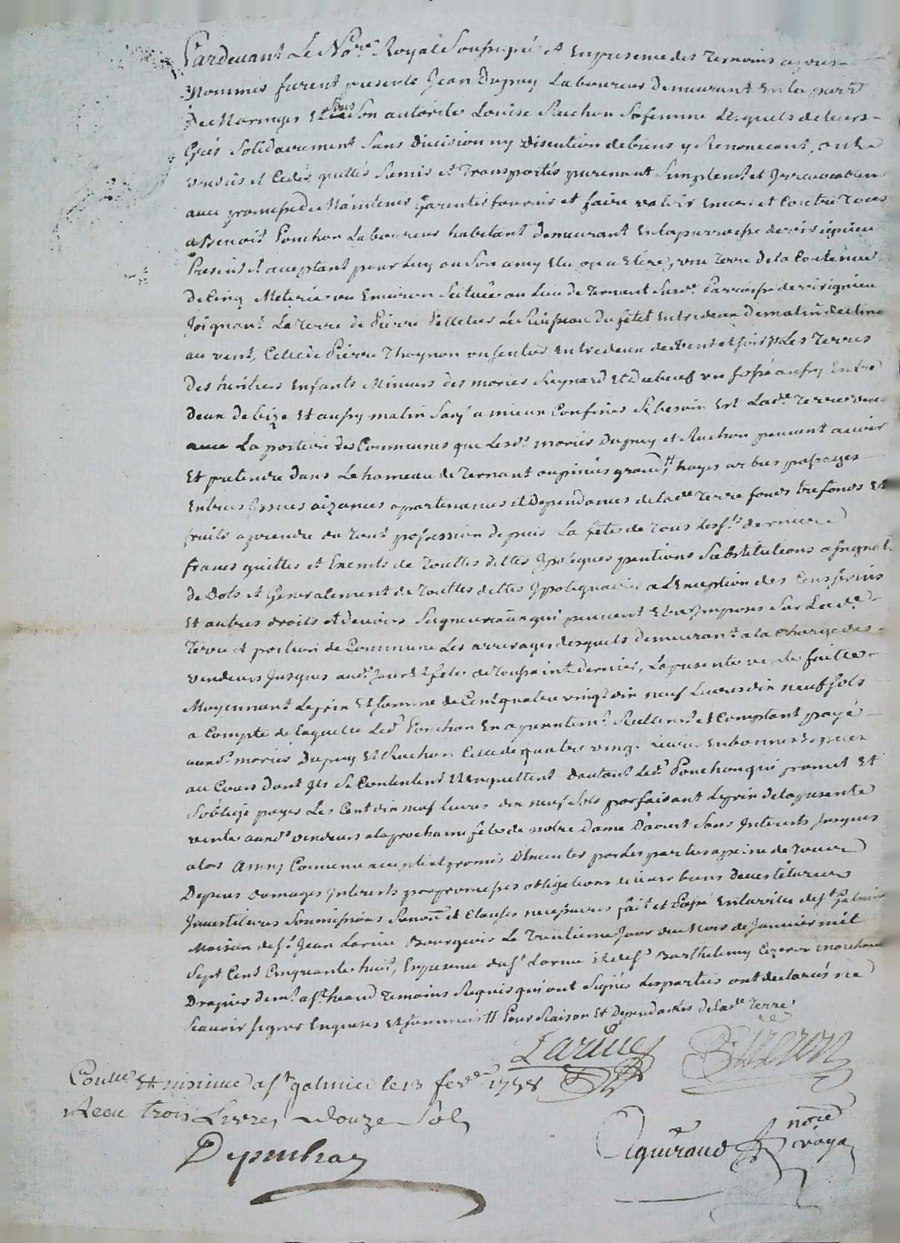 Pardevant Le No.re Royal Soussigné et En presence des Temoins apres
Nommés furent presents Jean Dupuy Laboureur Demeurant En la parr.e
De Maringes Et sous Son autorité Louise Ruchon Sa femme Lesquels de leurs
Grés Solidairement Sans Division ny Discution de biens y Renoncant, ont
vendus et Cedés quittés Remis et Transportés purement Simplem.t et Irrevocablem.
avec promesse de Maintenir Garentir fournir et faire valoir Envers et Contre Tous
a Benoist Ponchon Laboureur habitant demeurant En la parroisse de virigneu
Present et aceptant pour Luy ou Son amy Elu ou a Elire, une Terre de la Contenue
De Cinq Meterée ou Environ Scituée au Lieu de Ternant Susd. Parroisse de virigneu
Joignant La Terre de Pierre Pelletier Entredeux De matin
au vent, Celle de Pierre Thoynon un Sentier Entredeux de vent et Soir Les Terres
Des heritiers Enfants Mineurs des mariés Reynard Et Dubeuf un fossé aussy Entre
Deux de bize Et aussy matin Sauf a mieux Confiner Si besoin Est Lad.e Terre
avec La portion des Communes que Lesd. mariés Dupuy et Ruchon peuvent avoir
Et pretendre dans Le hameau de Ternant hayes arbres passages
Entrées Issues aizances apartenances et Dependances de lad.e Terre fonds trefonds Et
fruits a prendre en Tout possession depuis La fête de Tous Les S.ts derniere
francs quittes et Exemts de Touttes dettes Ipoteques pentions Substitutions
De Dots et Generalement de Touttes dettes a L'Exception des Cens servis
Et autres droits et devoirs Seigneuriaux qui peuvent Etre Imposés Sur Lad.e
Terre et portion de Commune Les arrerages desquels demeurant a la Charge des
vendeurs Jusques aud. Jour et fete de Toussaint dernier, La presente vente faitte
Moyennant Le prix Et Somme de Cent quatre vingt dix neuf Livres dix neuf Sols
a Compte de Laquelle Led. Ponchon En a presentem.t Reellem.t et Comptant payé
auxd. mariés Dupuy Et Ruchon Celle de quatre vingt Livres En bonnes Especes
au Cours Dont Ils Se Contentent Et En quittent Dautant Led. Ponchon qui promet Et
S'oblige payer Les Cent dix neuf Livres dix neuf Sols parfaisant Le prix de la presente
vente auxd. vendeurs a la prochaine fête de notre Dame D'aoust Sans Interests Jusques
alors Ainsy Convenu accepté et promis observer par Les parties a peine de Tous
Depens Domages Interests par promesses obligations de leurs biens Devestitures
Investitures Soumissions Renon.on et Clauses necessaires fait et Passé En la ville de S.t Galmier
Maison de S.r Jean Larive Bourgeois Le Trentieme Jour du Mois de Janvier mil
Sept Cent Cinquante huit, En presence dud. S.r Larive Et de S.r Barthelemy Cizeron marchand
Drapier dem.t a S.t heand Temoins Requis qui ont Signés Les parties ont declarés ne
Scavoir Signer Enquises Et Sommés
Larive
Cizeron
Cont.lé Et insinué a S.t galmier le 13 fev.er 1758
Receu trois Livres douze Sols
Depuichaz
Aiguiraud no.re royal